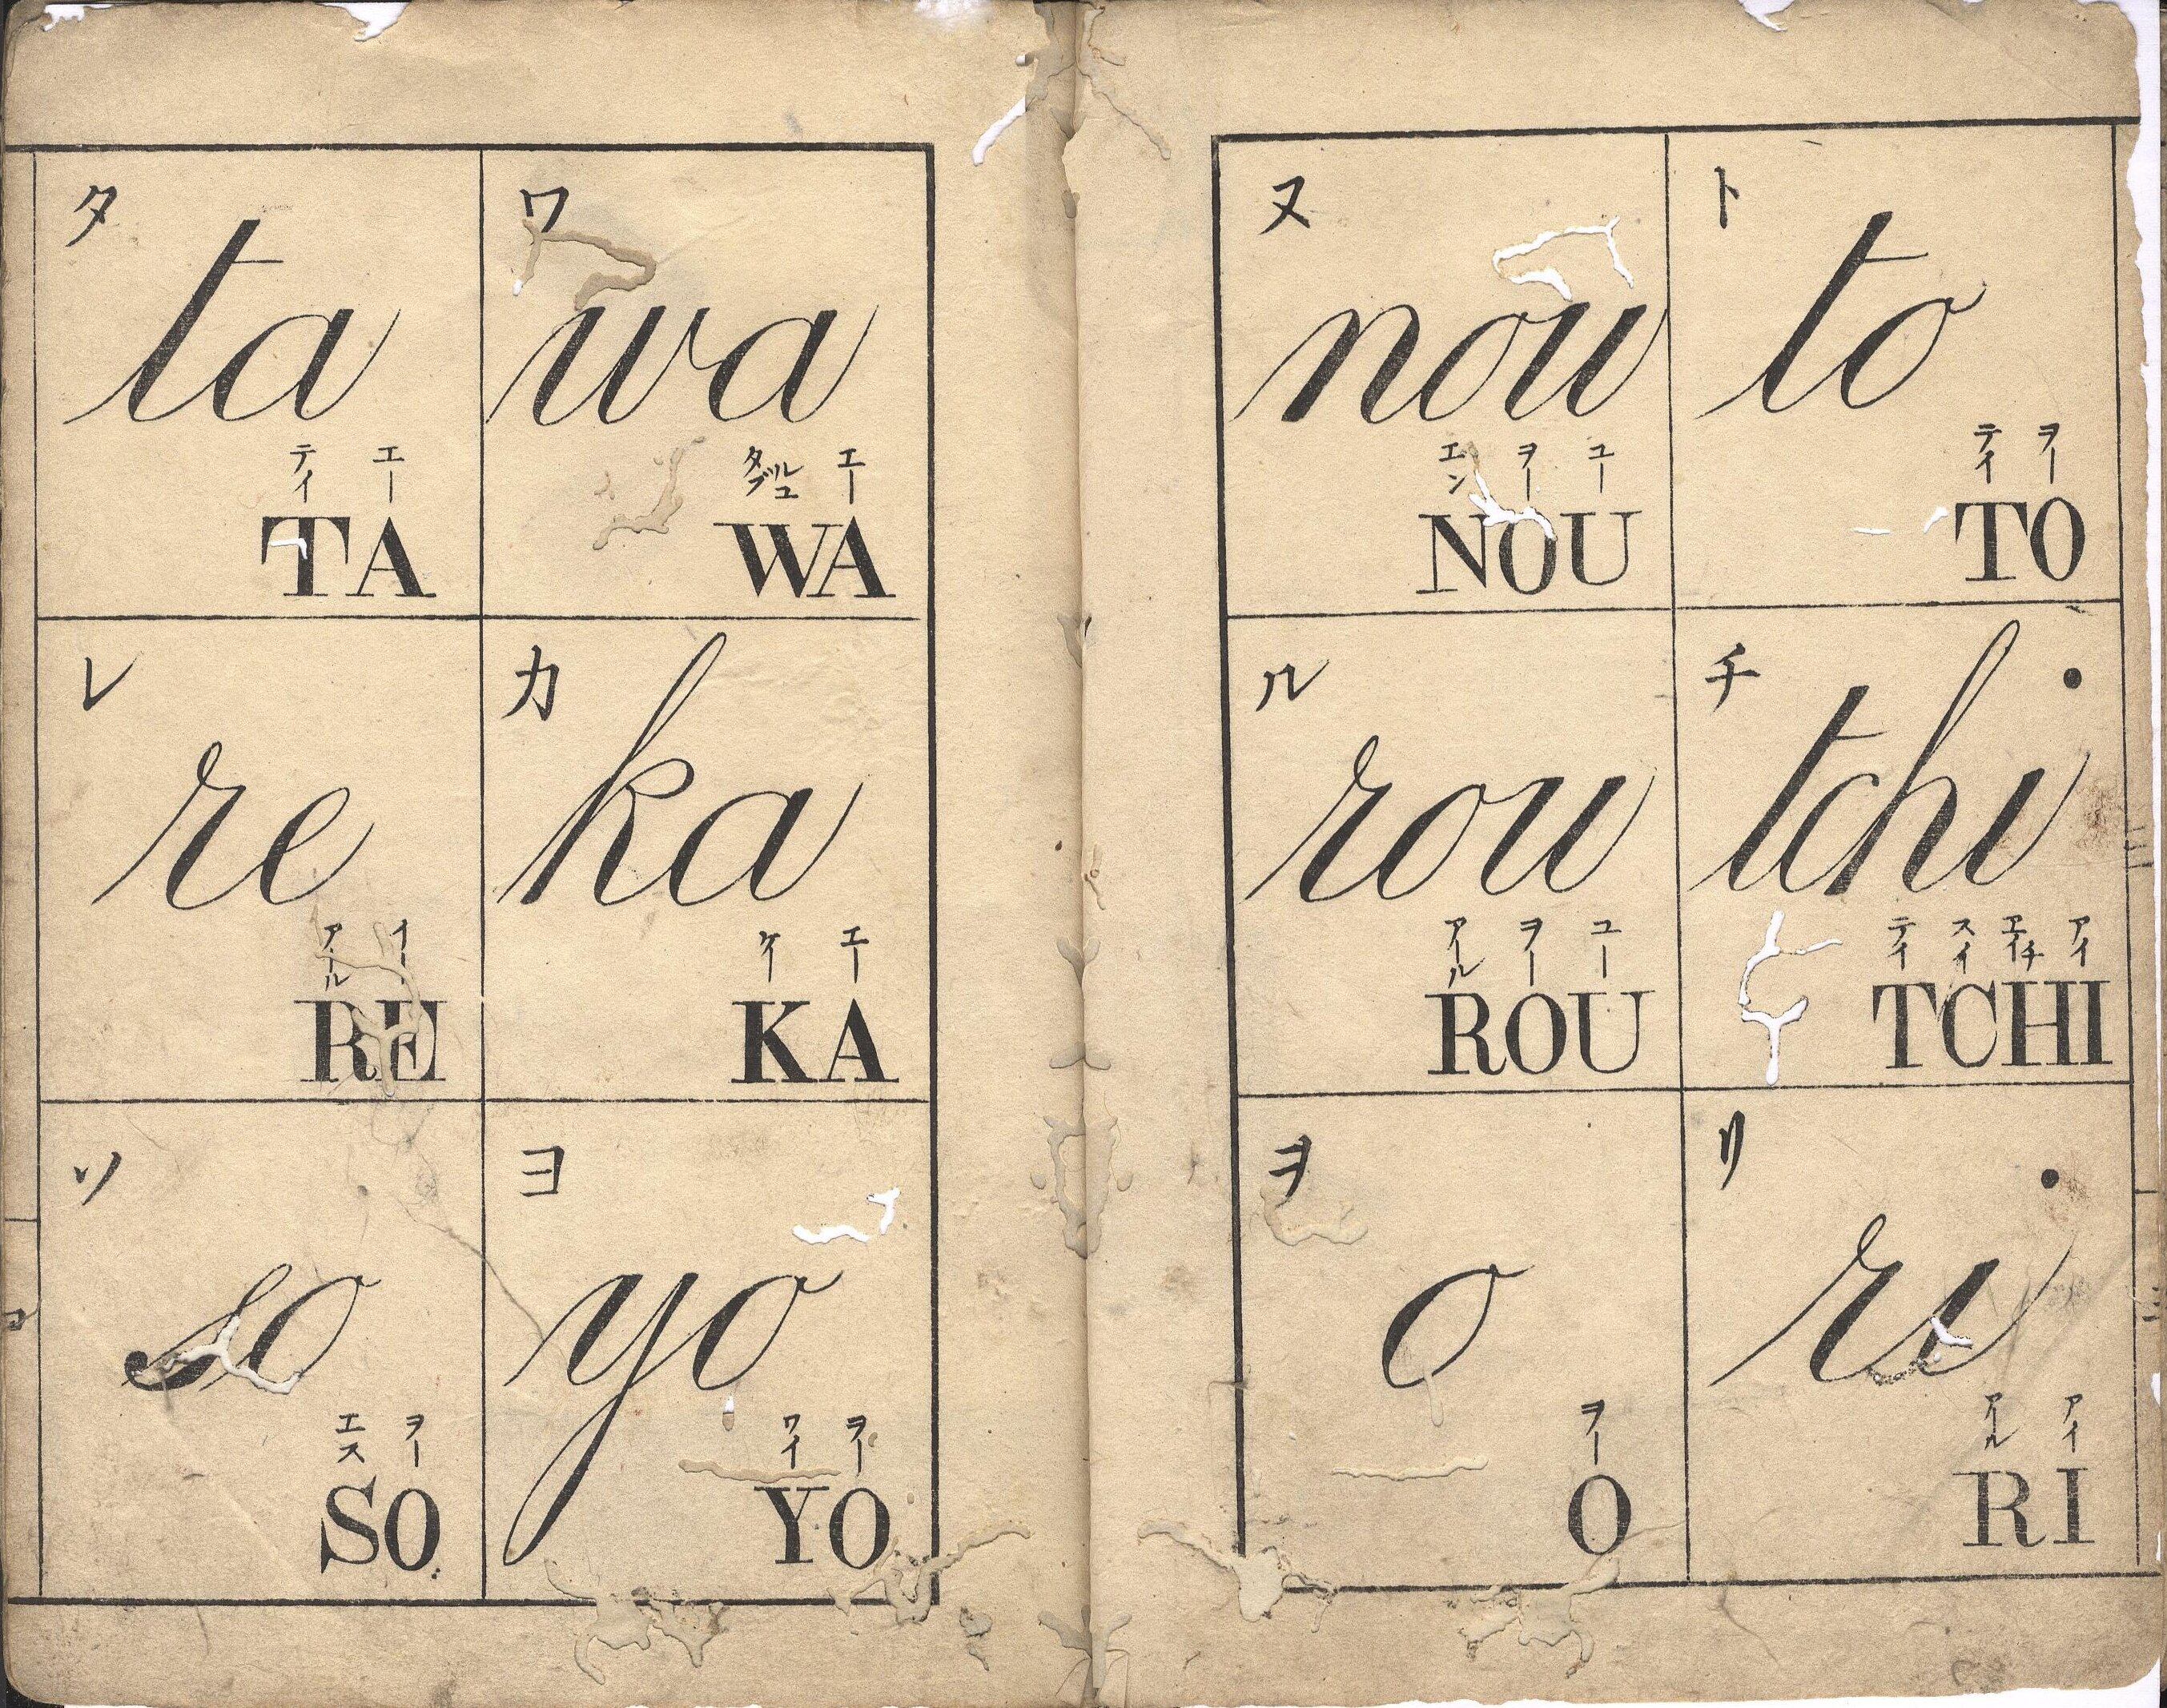 ト
to
テイ ヲー
TO
チ
tchi
テイ スイ エイチ アイ
TCHI
リ
ri
アール アイ
RI
ヌ
nou
エン ヲー ユー
NOU
ル
rou
アール ヲー ユー
ROU
ヲ
o
ヲー
O
ワ
wa
タブルユ エー
WA
カ
ka
ケー エー
KA
ヨ
yo
ワイ ヲー
YO
タ
ta
テイ エー
TA
レ
re
アール イー
RE
ソ
so
エス ヲー
SO